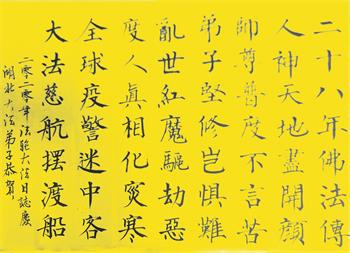 二十八年佛法傳
人神天地盡開顏
師尊普度不言苦
弟子堅修豈懼難
亂世紅魔驅劫惡
度人眞相化灾寒
全球疫警迷中客
大法慈航擺渡船
二零二零年法輪大法日誌慶
湖北大法弟子恭賀